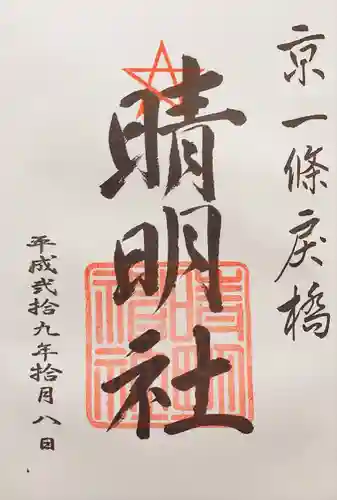 京一條戻橋
晴明社
平成弐拾九年拾月八日
晴明神社